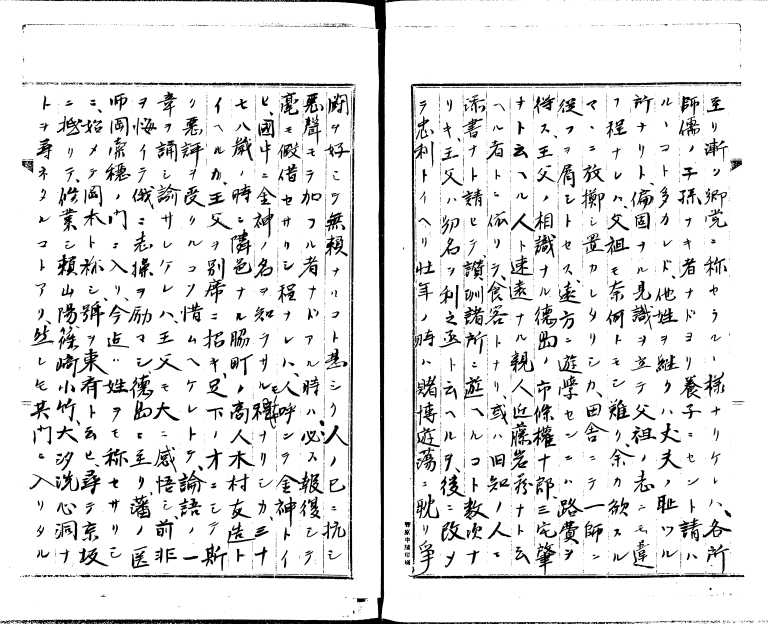 至リ漸ク郷党ニ称セラルヽ様ナリケレハ、各所
師儒ノ子孫ナキ者ナドヨリ養子ニセント請ハ
ルヽコト多カレド、他姓ヲ継クハ丈夫ノ耻ツル
所ナリト、偏固ナル見識ヲ立テ父祖ノ志ニモ違
フ程ナレハ、父祖モ奈何トモシ難リ、余カ欲スル
マヽニ放擲シ置カレタリシカ、田舎ニテ一師ニ
従フヲ屑シトセス、遠方ニ遊学センニハ路費ヲ
得ス、王父ノ相識ナル徳島ノ市條權十郎、三宅肇
ナト云ヘル人ト速遠ナル親人近藤岩蔵ナト云
ヘル者トニ依リテ食客トナリ、或ハ旧知ノ人ニ
添書ナト請ヒテ讃訓諸所ニ遊ヘルコト数次ナ
リキ、王父ハ初名ヲ利之丞ト云ヘルヲ、後ニ改メ
テ忠利トイヘリ、壮年ノ時ハ賭博遊蕩ニ耽リ、争
闘ヲ好ミテ無頼ナリコト甚シク、人ノ己ニ抗シ
悪聲モテ加フル者ナドアル時ハ、必ス報復シテ
毫モ假借セサリシ程ナレハ、人呼ンテ金神トイ
ヒ、國中ニ金神ノ名ヲ知ラサルモ稀ナリシカ、三十
七八歳ノ時ニ隣邑ナル脇町ノ商人木村友造ト
イヘルカ、王父ヲ別席ニ招キ、足下ノ才ニシテ斯
ク悪評ヲ受クルコソ惜ムヘケレトテ、論語ノ一
章ヲ誦シ諭サレケレハ、王父モ大ニ感悟シ、前非
ヲ悔イテ俄ニ志操ヲ励マシ、徳島ニ至リ藩ノ医
師岡索穏ノ門ニ入リ、今迄ハ姓ヲモ称セサリシ
ニ、始メテ岡本ト称シ、號ヲ東斎ト云ヒ、尋テ京坂
ニ抵リテ修業シ、頼山陽、篠崎小竹、大汐洗心洞ナ
トヲ尋ネタルコトアリ、然レモ其門ニ入リタル